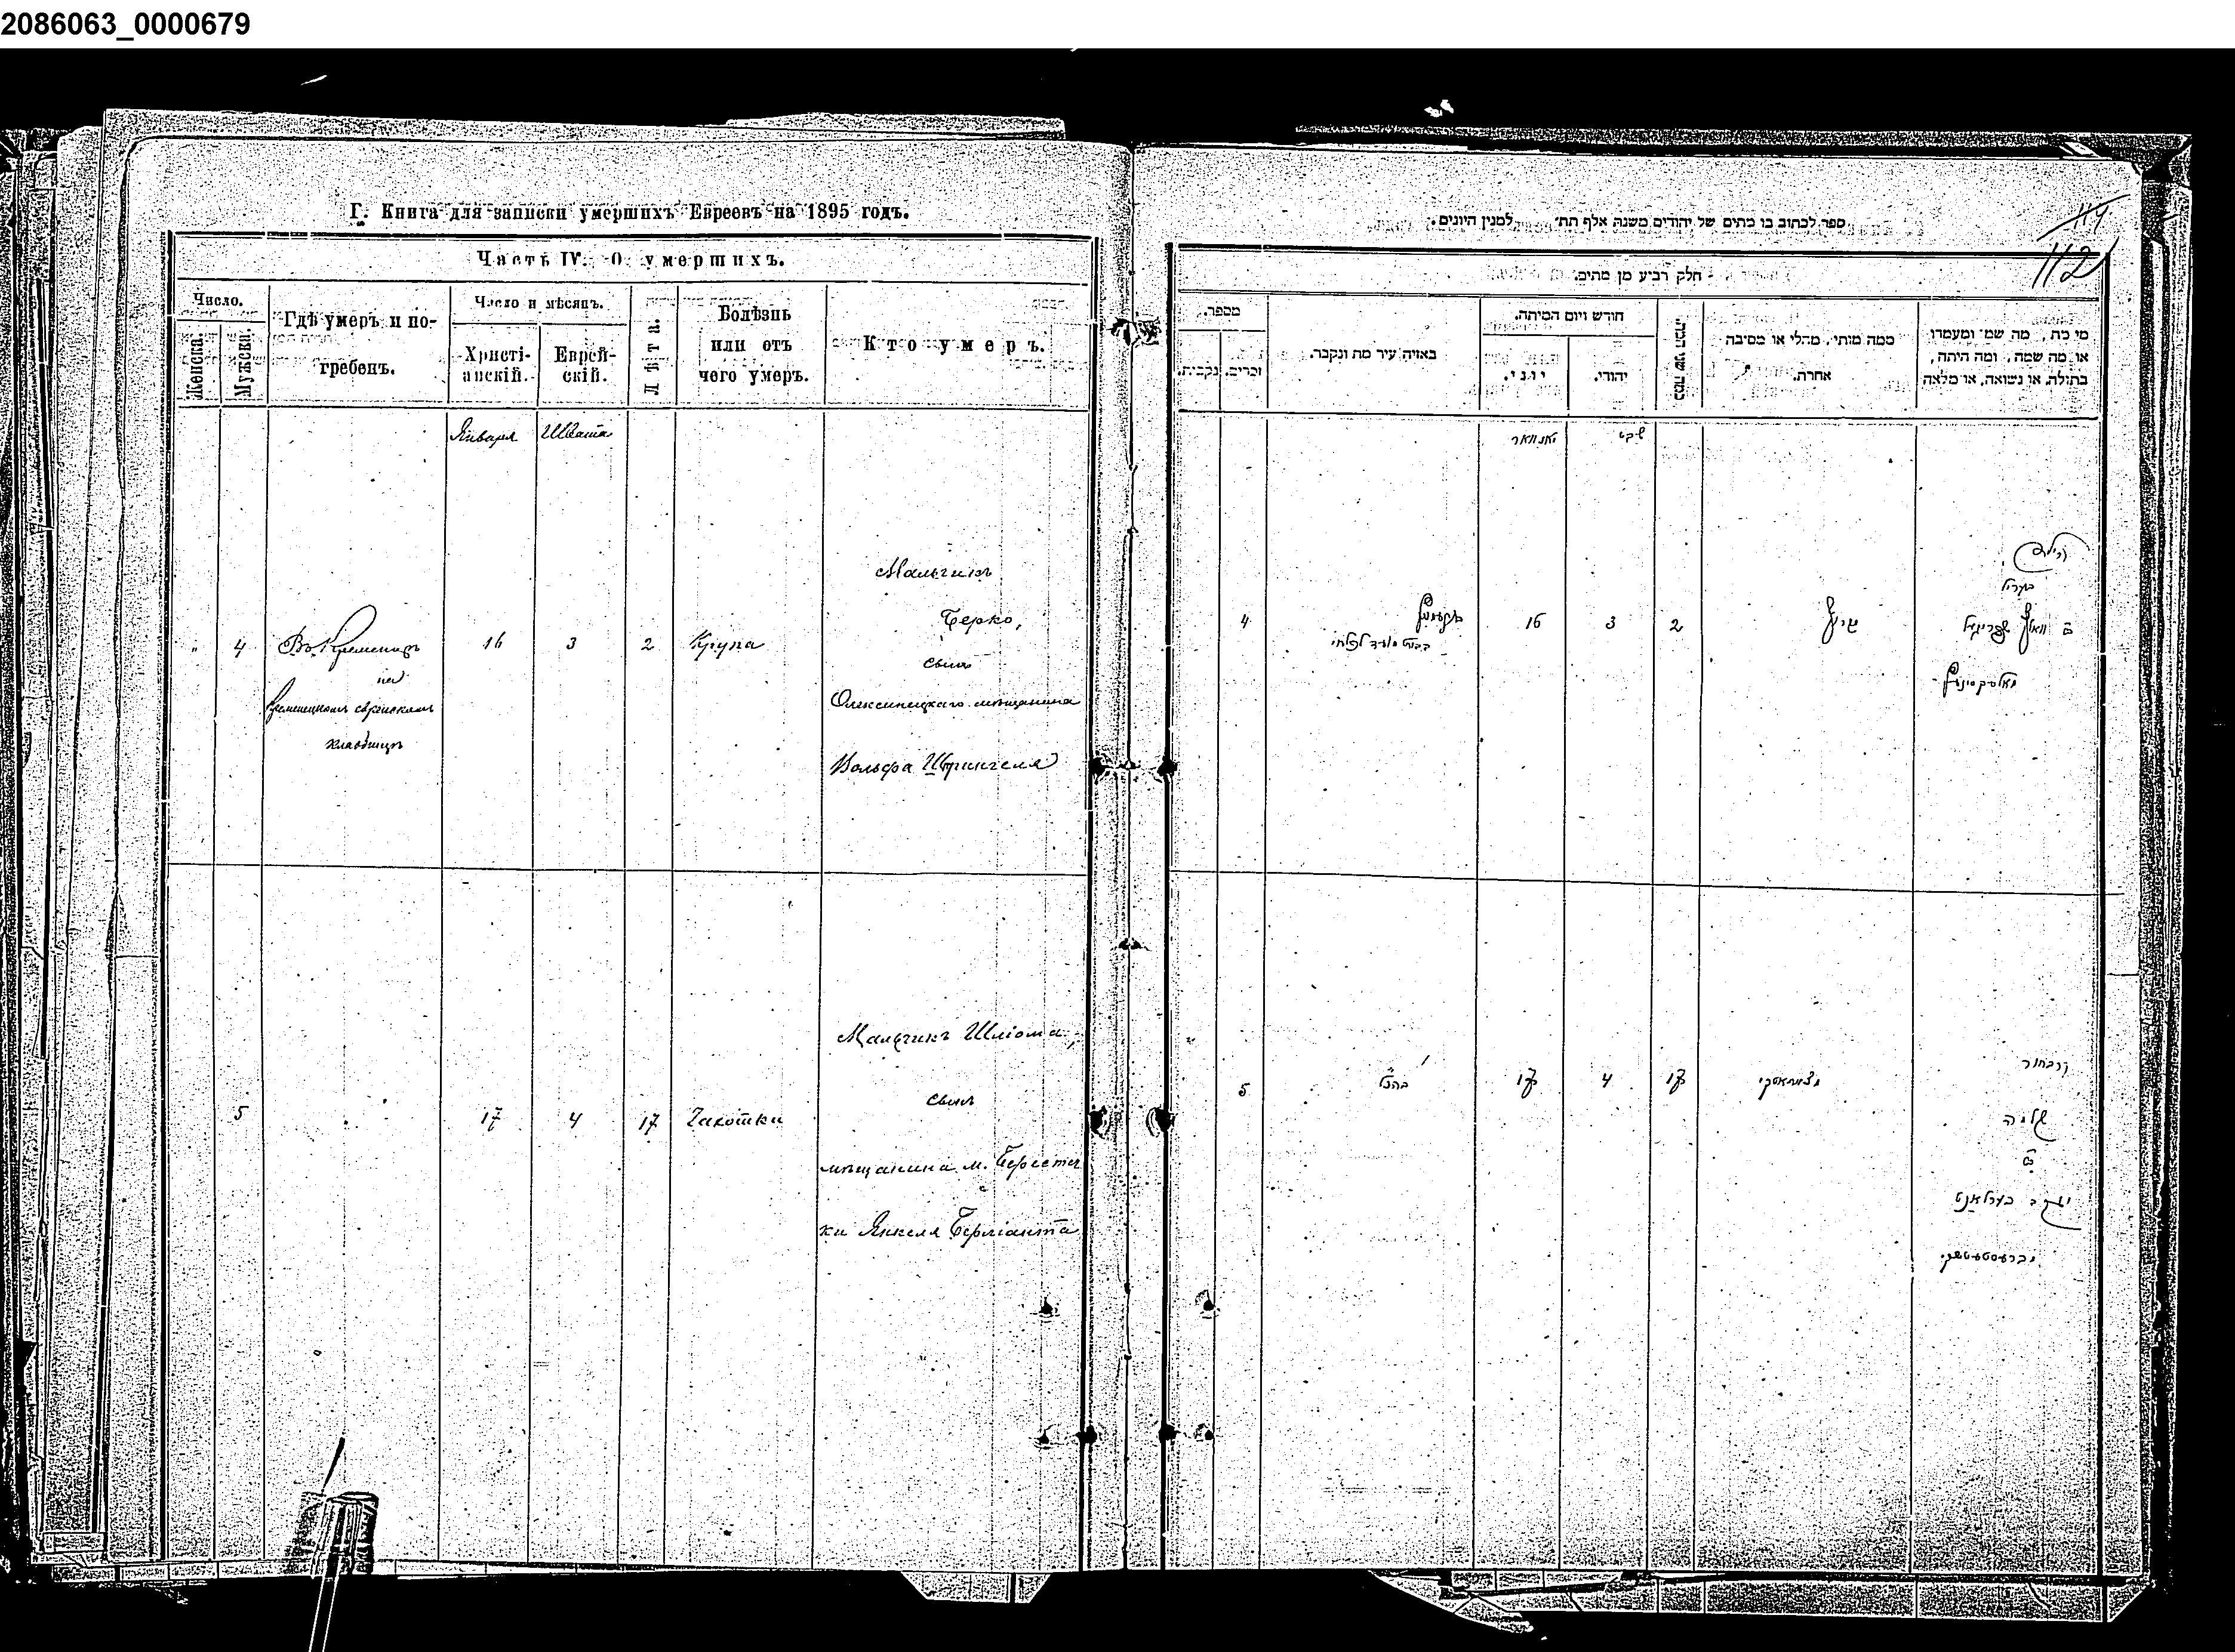 2086063_0000679
Г. Книга для записки умершихъ Евреевъ на 1895 годъ.
Часть IV. О умершихъ.
Число.
Женска.
Мужска.
Гдѣ умеръ и по-
гребенъ.
Число и мѣсяцъ.
Христі-
анскій.
Еврей-
скій.
Лѣта.
Болѣзнь
или отъ
чего умеръ.
Кто умеръ.
Января
Швата
"
4
Въ Кременцѣ
на
Кременецкомъ еврейскомъ
кладбищѣ
16
3
2
Крупа
Мальчикъ
Берко,
сынъ
Олексинецкаго мѣщанина
Вольфа Шпрингеля
5
17
4
17
Чахотки
Мальчикъ Шліома,
сынъ
мѣщанина м. Берестеч
ки Янкеля Берліанта
ספר לכתוב בו מתים של יהודים משנת אלף תת׳ למנין היונים.
114
112
חלק רביע מן מתים.
מספר.
נקבות.
זכרים.
באיזה עיר מת ונקבר.
חודש ויום המיתה.
יוני.
יהודי.
כמה שני המת.
ממה מותו, מחלי או מסיבה
אחרת.
מי מת, מה שמו ומעמדו
או מה שמה, ומה היתה,
בתולה, או נשואה, או אלמנה
יאנוואר
שבט
4
16
3
2
הילד
בעריל
5
בהנ״ל
17
4
17
הבחור
שלמה
ב
יעקב בערלאנט